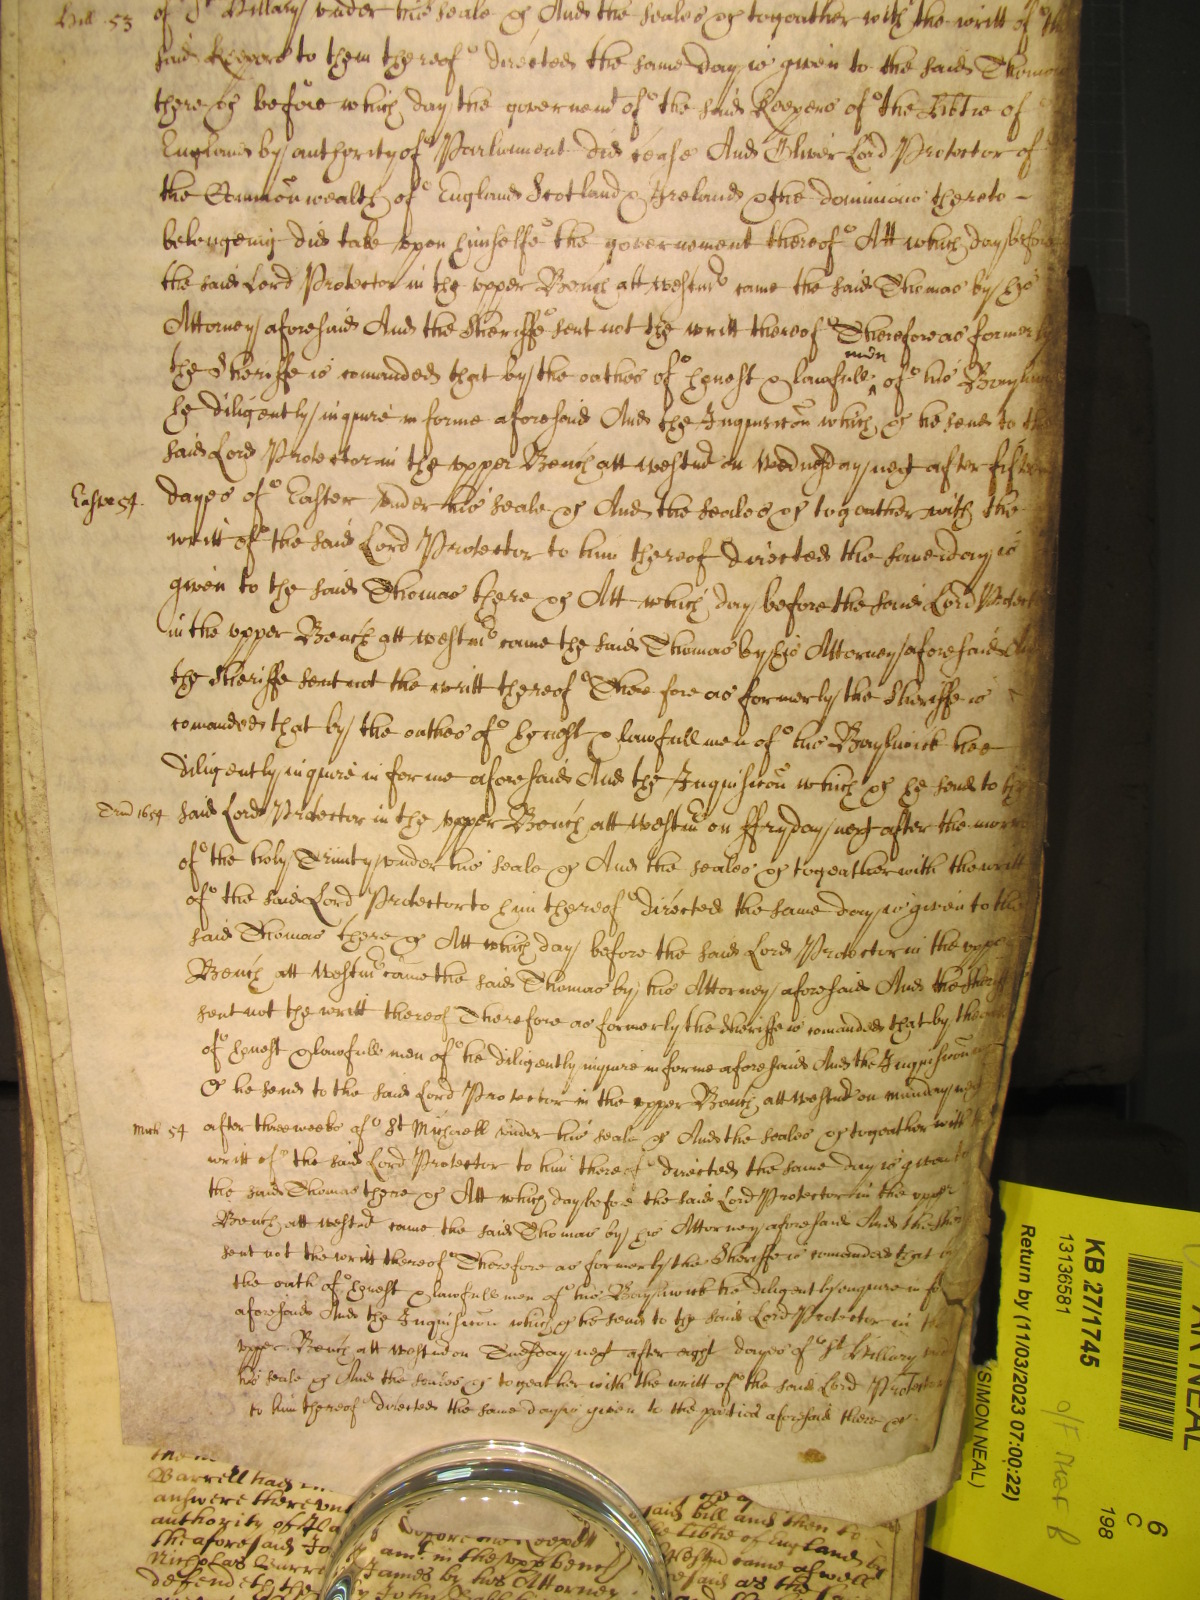 Hill 53
of St Hillary under his seale &c And the seales &c togeather with the writt of the
said Keepers to them thereof directed the same day is given to the said Thomas
there &c before which day the governemt of the said Keepers of the Libtie of
England by authority of Parliament did cease And Oliver Lord Protector of
the Commonwealth of England Scotland & Ireland & the dominions thereto
belongeing did take upon himselfe the governement thereof Att which day before
the said Lord Protector in the upper Bench att Westmr came the said Thomas by his
Attorney aforesaid And the Sheriffe sent not the writt thereof Therefore as formerly
the Sheriffe is comanded that by the oathes of honest & lawfull men of his Bayliwick
he diligently inquire in forme aforesaid And the Inquisicon which &c he send to the
said Lord Protector in the upper Bench att Westmr on Wednesday next after fifteen
Easter 54
dayes of Easter under his seale &c And the seales &c togeather with the
writt of the said Lord Protector to him thereof directed the same day is
given to the said Thomas there &c Att which day before the said Lord Protector
in the upper Bench att Westmr came the said Thomas by his Attorney aforesaid And
the Sheriffe sent not the writt thereof Therefore as formerly the Sheriffe is
comanded that by the oathes of honest & lawfull men of his Bayliwick hee
diligently inquire in forme aforesaid And the Inquisicon which &c he send to the
Trin 1654
said Lord Protector in the upper Bench att Westmr on ffryday next after the morrow
of the holy Trinity under his seale &c And the seales &c togeather with the writt
of the said Lord Protector to him thereof directed the same day is given to the
said Thomas there &c Att which day before the said Lord Protector in the upper
Bench att Westmr came the said Thomas by his Attorney aforesaid And the Sheriffe
sent not the writt thereof Therefore as formerly the Sheriffe is comanded that by the oath
of honest & lawfull men of he diligently inquire in forme aforesaid And the Inquisicon
& he send to the said Lord Protector in the upper Bench att Westmr on Munday next
Mich 54
after three weekes of St Michaell under his seale &c And the seales &c togeather with the
writt of the said Lord Protector to him thereof directed the same day is given to
the said Thomas there &c Att which day before the said Lord Protector in the upper
Bench att Westmr came the said Thomas by his Attorney aforesaid And the Sheriffe
sent not the writt thereof Therefore as formerly the Sheriffe is comanded that by
the oath of honest & lawfull men of his Bayliwick he diligently enquire in
aforesaid And the Inquisicon which &c he send to the said Lord Protector in the
upper Bench att Westmr on Tuesday next after eight dayes of St Hillary
his seale &c And the seales &c togeather with the writt of the said Lord Protector
to him thereof directed the same day is given to the parties aforesaid there &c
Barrell had
answere thereunt said bill and then to
authority of Pa the Libtie of England by
the aforesaid Jo in the upp bench Westmr came aswell
Nicholas Barre James by his Attorney said as the
defend the
KB 271/745
13136581
Return by (11/03/2023 07:00:22)
(SIMON NEAL)
6
C
198